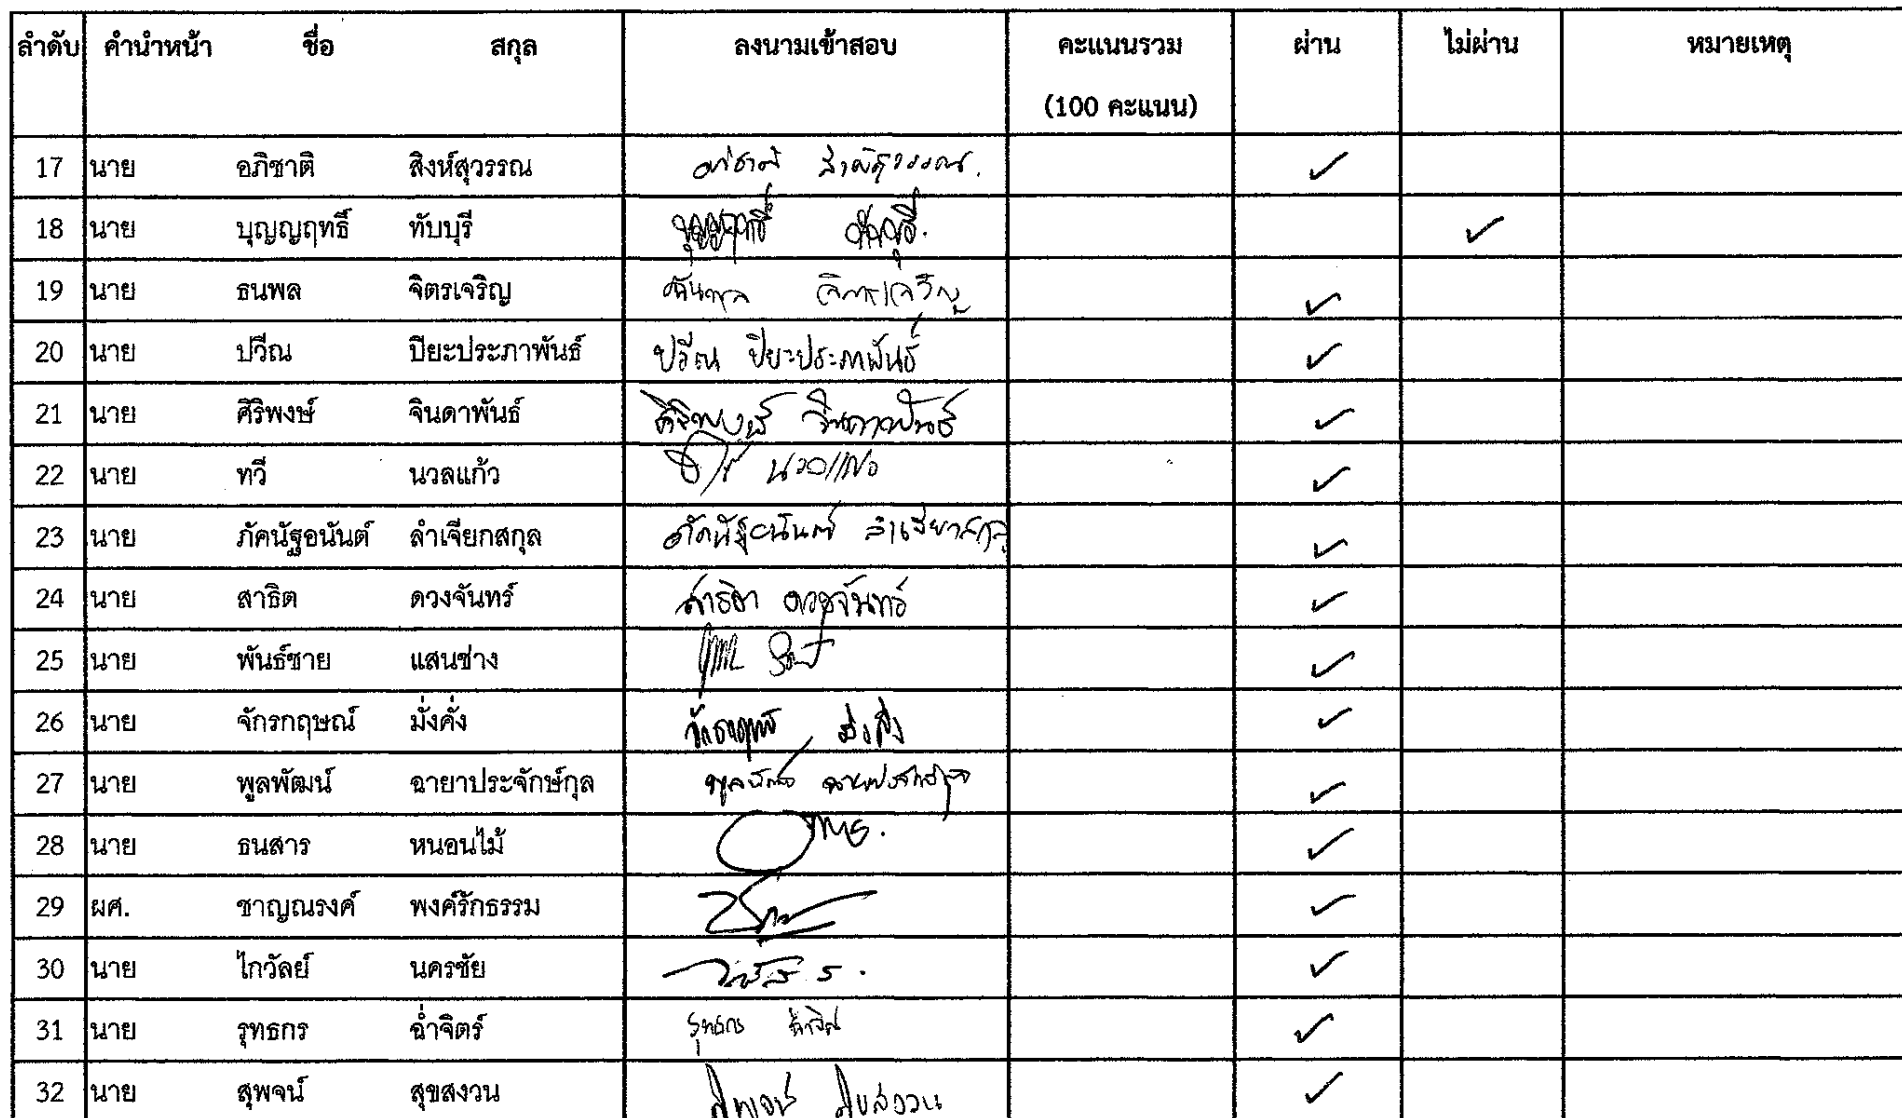 ลำดับ คำนำหน้า ชื่อ สกุล ลงนามเข้าสอบ คะแนนรวม ผ่าน ไม่ผ่าน หมายเหตุ
(100 คะแนน)
17 นาย อภิชาติ สิงห์สุวรรณ อภิชาติ สิงห์สุวรรณ. ✓
18 นาย บุญญฤทธิ์ ทับบุรี บุญญฤทธิ์ ทับบุรี. ✓
19 นาย ธนพล จิตรเจริญ ธนพล จิตรเจริญ ✓
20 นาย ปวีณ ปิยะประภาพันธ์ ปวีณ ปิยะประภาพันธ์ ✓
21 นาย ศิริพงษ์ จินดาพันธ์ ศิริพงษ์ จินดาพันธ์ ✓
22 นาย ทวี นวลแก้ว ✓
23 นาย ภัคนัฐอนันต์ ลำเจียกสกุล ภัคนัฐอนันต์ ลำเจียกสกุล ✓
24 นาย สาธิต ดวงจันทร์ สาธิต ดวงจันทร์ ✓
25 นาย พันธ์ชาย แสนช่าง ✓
26 นาย จักรกฤษณ์ มั่งคั่ง จักรกฤษณ์ มั่งคั่ง ✓
27 นาย พูลพัฒน์ ฉายาประจักษ์กุล พูลพัฒน์ ฉายาประจักษ์กุล ✓
28 นาย ธนสาร หนอนไม้ ✓
29 ผศ. ชาญณรงค์ พงค์รักธรรม ✓
30 นาย ไกวัลย์ นครชัย ✓
31 นาย รุทธกร ฉ่ำจิตร์ รุทธกร ฉ่ำจิตร์ ✓
32 นาย สุพจน์ สุขสงวน สุพจน์ สุขสงวน ✓